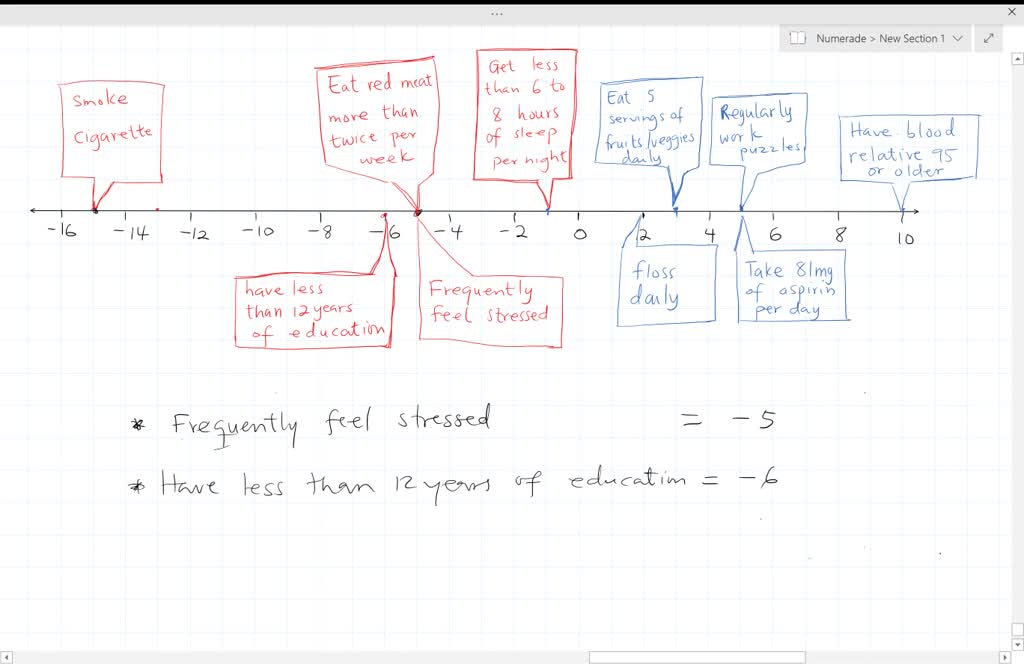 ...
Numerade > New Section 1
Smoke
Cigarette
Eat red meat
more than
twice per
week
Get less
than 6 to
8 hours
of sleep
per night
Eat 5
servings of
fruits/veggies
daily
Regularly
work
puzzles
Have blood
relative 95
or older
-16 -14 -12 -10 -8 -6 -4 -2 0 2 4 6 8 10
have less
than 12 years
of education
Frequently
feel stressed
floss
daily
Take 81mg
of aspirin
per day
* Frequently feel stressed = -5
* Have less than 12 years of education = -6